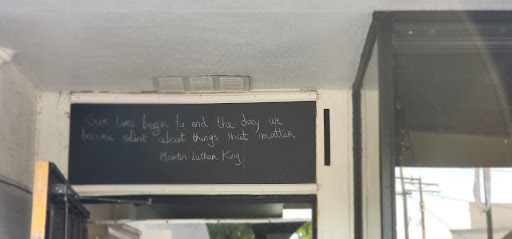 Our lives begin to end the day we
become silent about things that matter
Martin Luther King